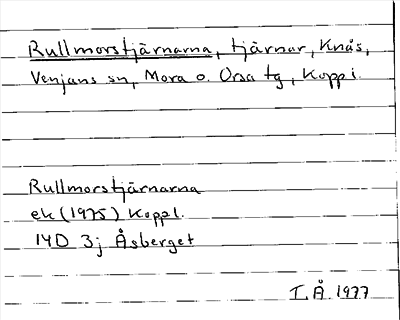 Rullmorstjärnarna, tjärnar, Knås,
Venjans sn, Mora o. Orsa tg, Koppl.
Rullmorstjärnarna
ek (1975) Koppl.
14D 3j Åsberget
T.Å. 1977